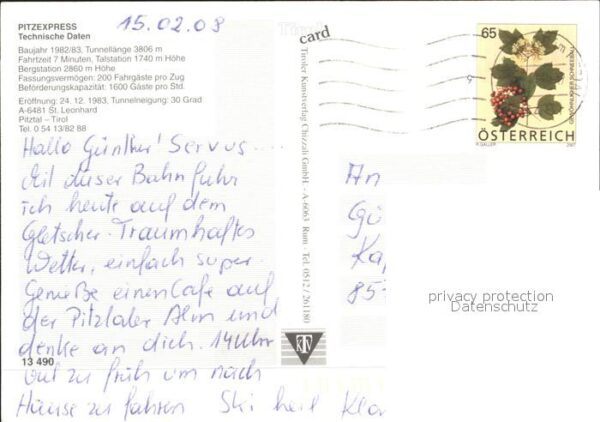 PITZEXPRESS
Technische Daten
Baujahr 1982/83, Tunnellänge 3806 m
Fahrtzeit 7 Minuten, Talstation 1740 m Höhe
Bergstation 2860 m Höhe
Fassungsvermögen: 200 Fahrgäste pro Zug
Beförderungskapazität: 1600 Gäste pro Std.
Eröffnung: 24. 12. 1983, Tunnelneigung: 30 Grad
A-6481 St. Leonhard
Pitztal – Tirol
Tel. 0 54 13/82 88
15.02.09
Hallo Günther! Servus....
Mit dieser Bahn fuhr
ich heute auf dem
Gletscher. Traumhaftes
Wetter, einfach super.
Genieße einen Cafe auf
der Pitztaler Alm und
denke an dich. 14 Uhr
viel zu früh um nach
Hause zu fahren Ski heil
13 490
Tirol
card
Tiroler Kunstverlag Chizzali GmbH. · A-6063 Rum · Tel. 0512 / 261180
KT
65
GEWÖHNLICHER SCHNEEBALL
ÖSTERREICH
P. GALLER 2007
An
Gü
Ka
85
privacy protection
Datenschutz